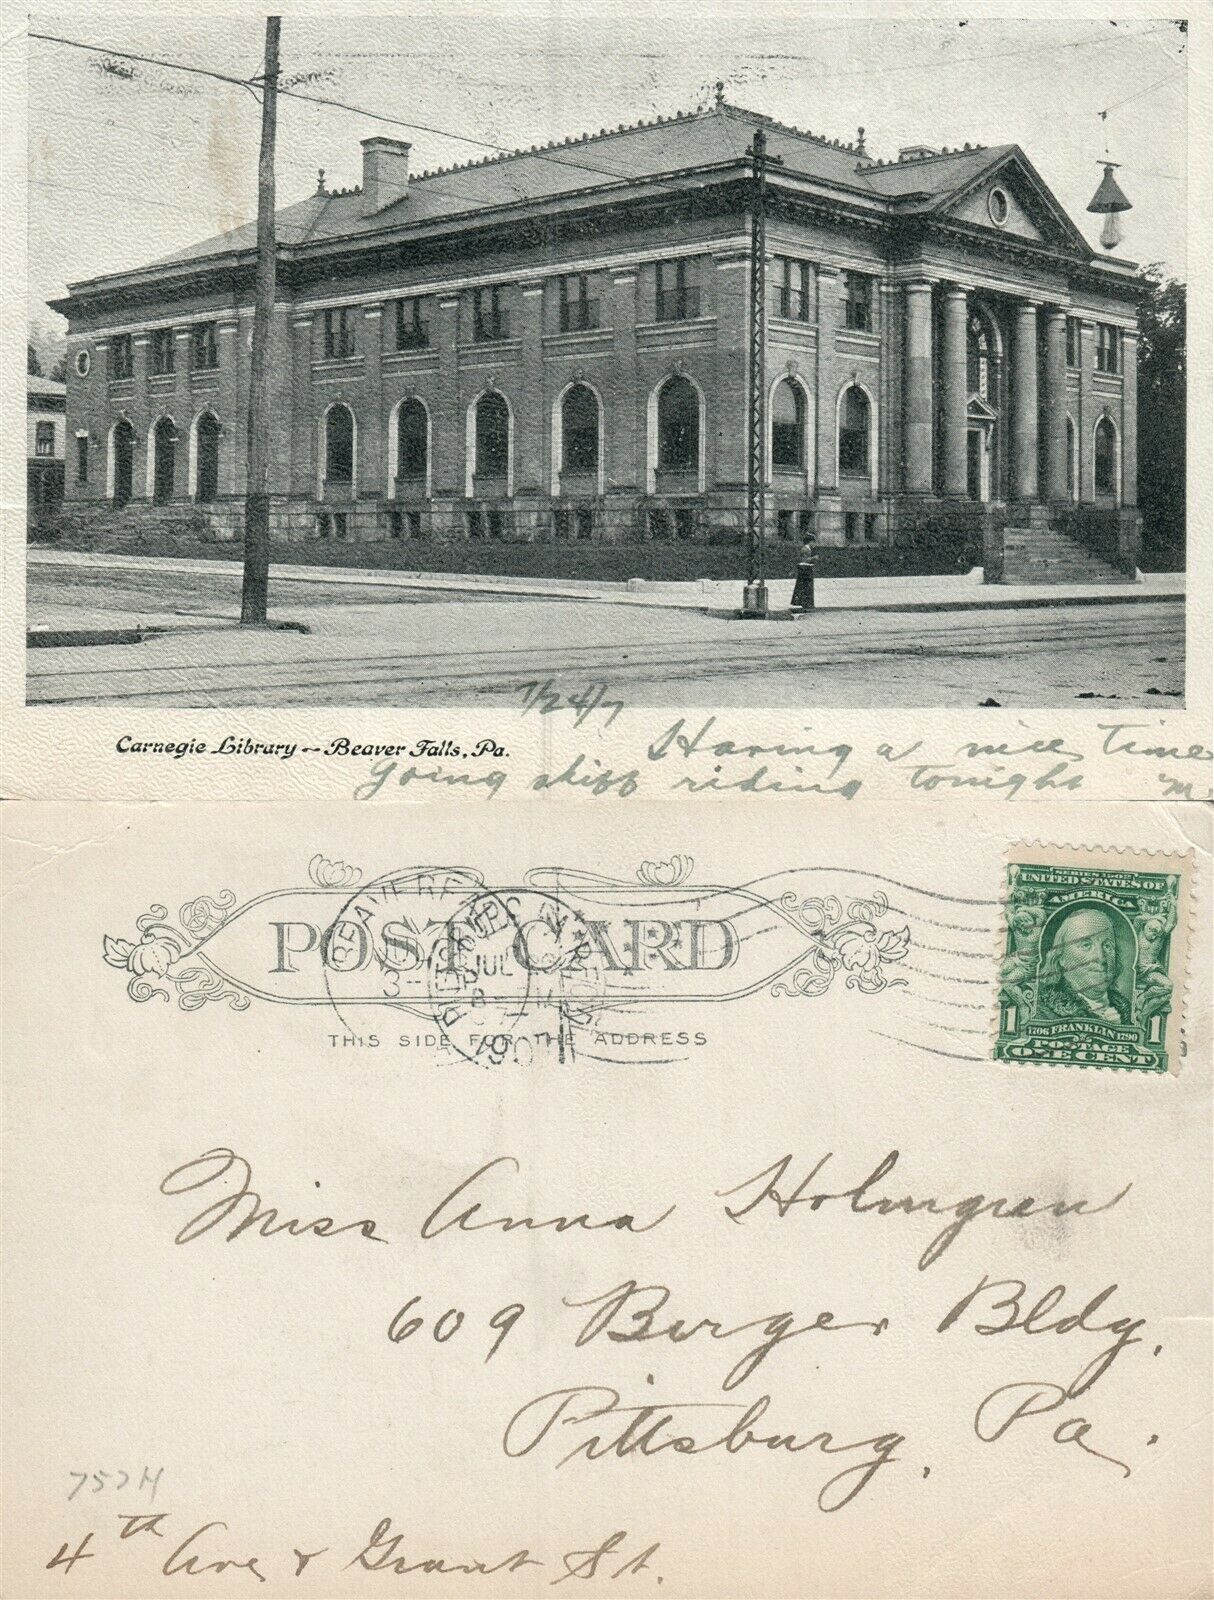 7/24/7
Carnegie Library — Beaver Falls, Pa.
Having a nice time
Going skiff riding tonight M.
POST CARD
THIS SIDE FOR THE ADDRESS
BEAVER FA
JUL
1907
SERIES 1902
UNITED STATES OF
AMERICA
1 1706 FRANKLIN 1790 1
POSTAGE
ONE CENT
Miss Anna Holmgren
609 Berger Bldg,
Pittsburg, Pa.
757H
4th Ave & Grant St.